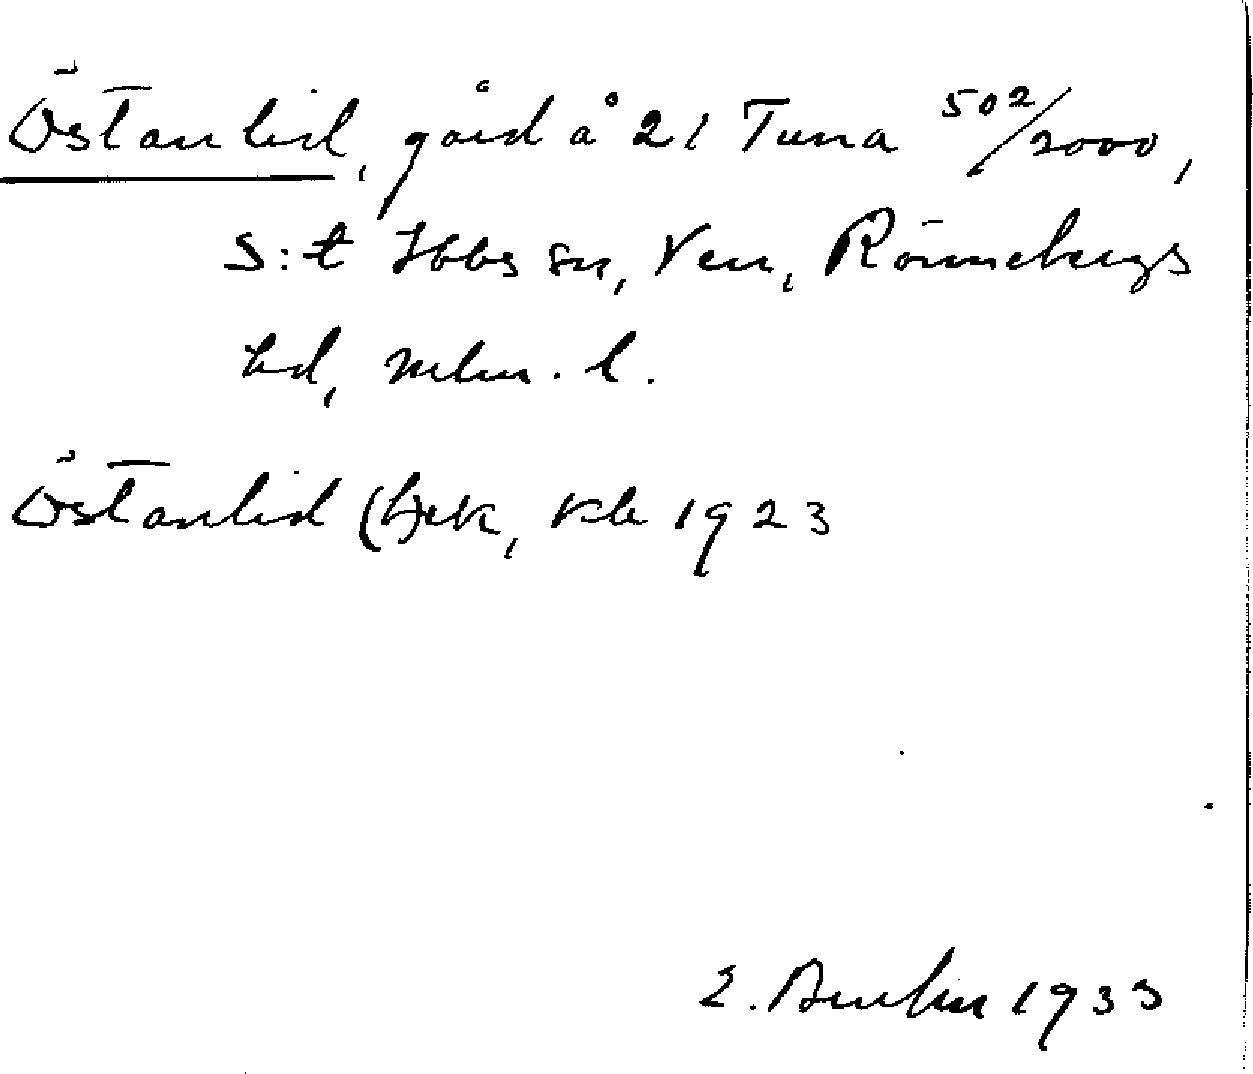 Östanlid, gård å 21 Tuna 502/2000,
S:t Ibbs sn, Ven, Rönnebergs
hd, Mlm. l.
Östanlid 1923
1933